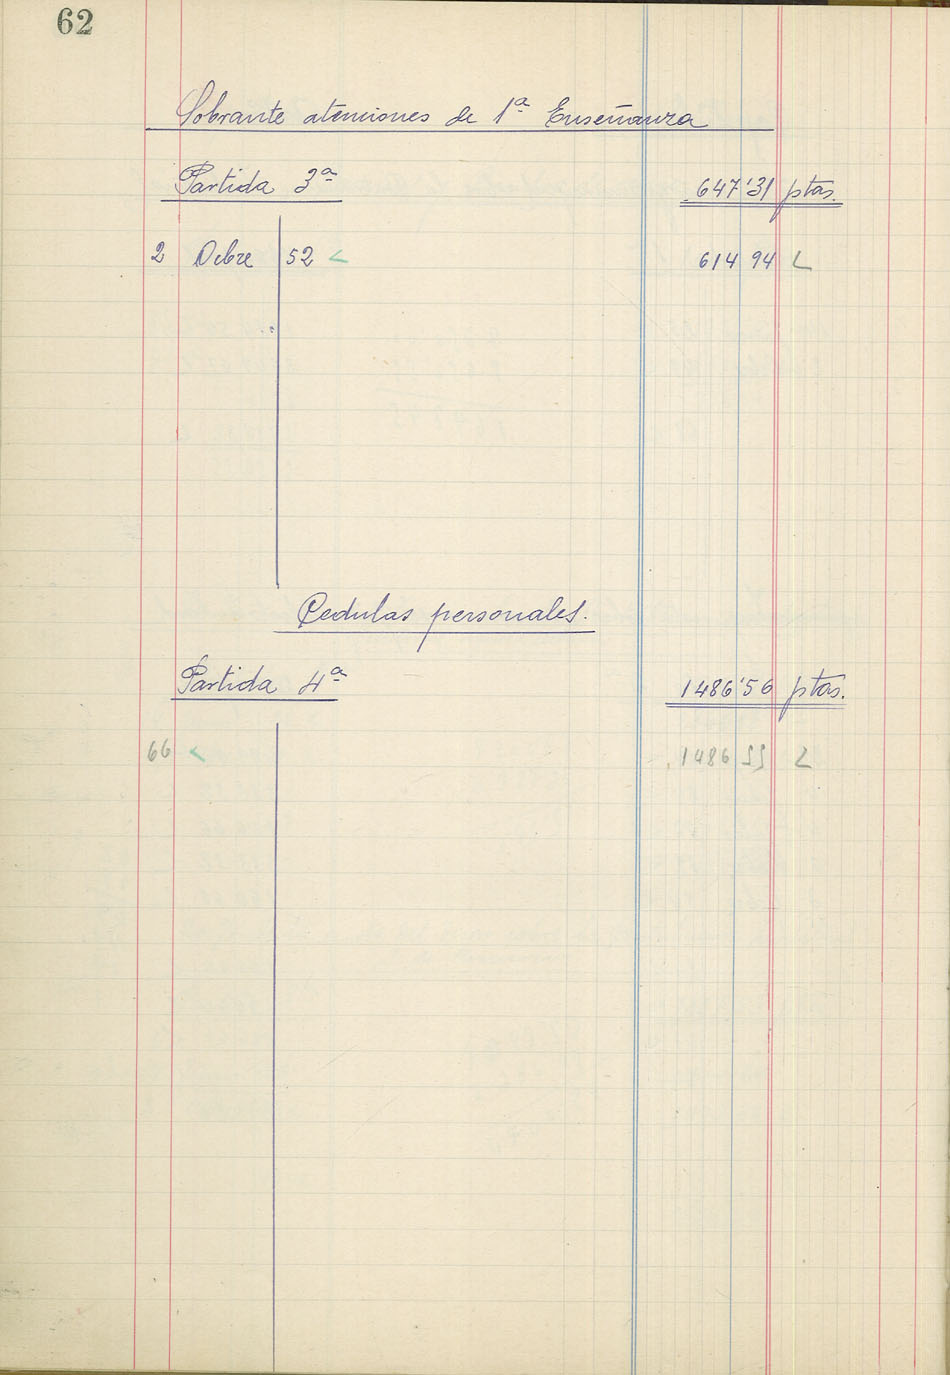 62
Sobrante atenciones de 1ª Enseñanza
Partida 3ª 647'31 ptas.
2 Dbre 52 614 94
Cedulas personales.
Partida 4ª 1486'56 ptas.
66 1486 55